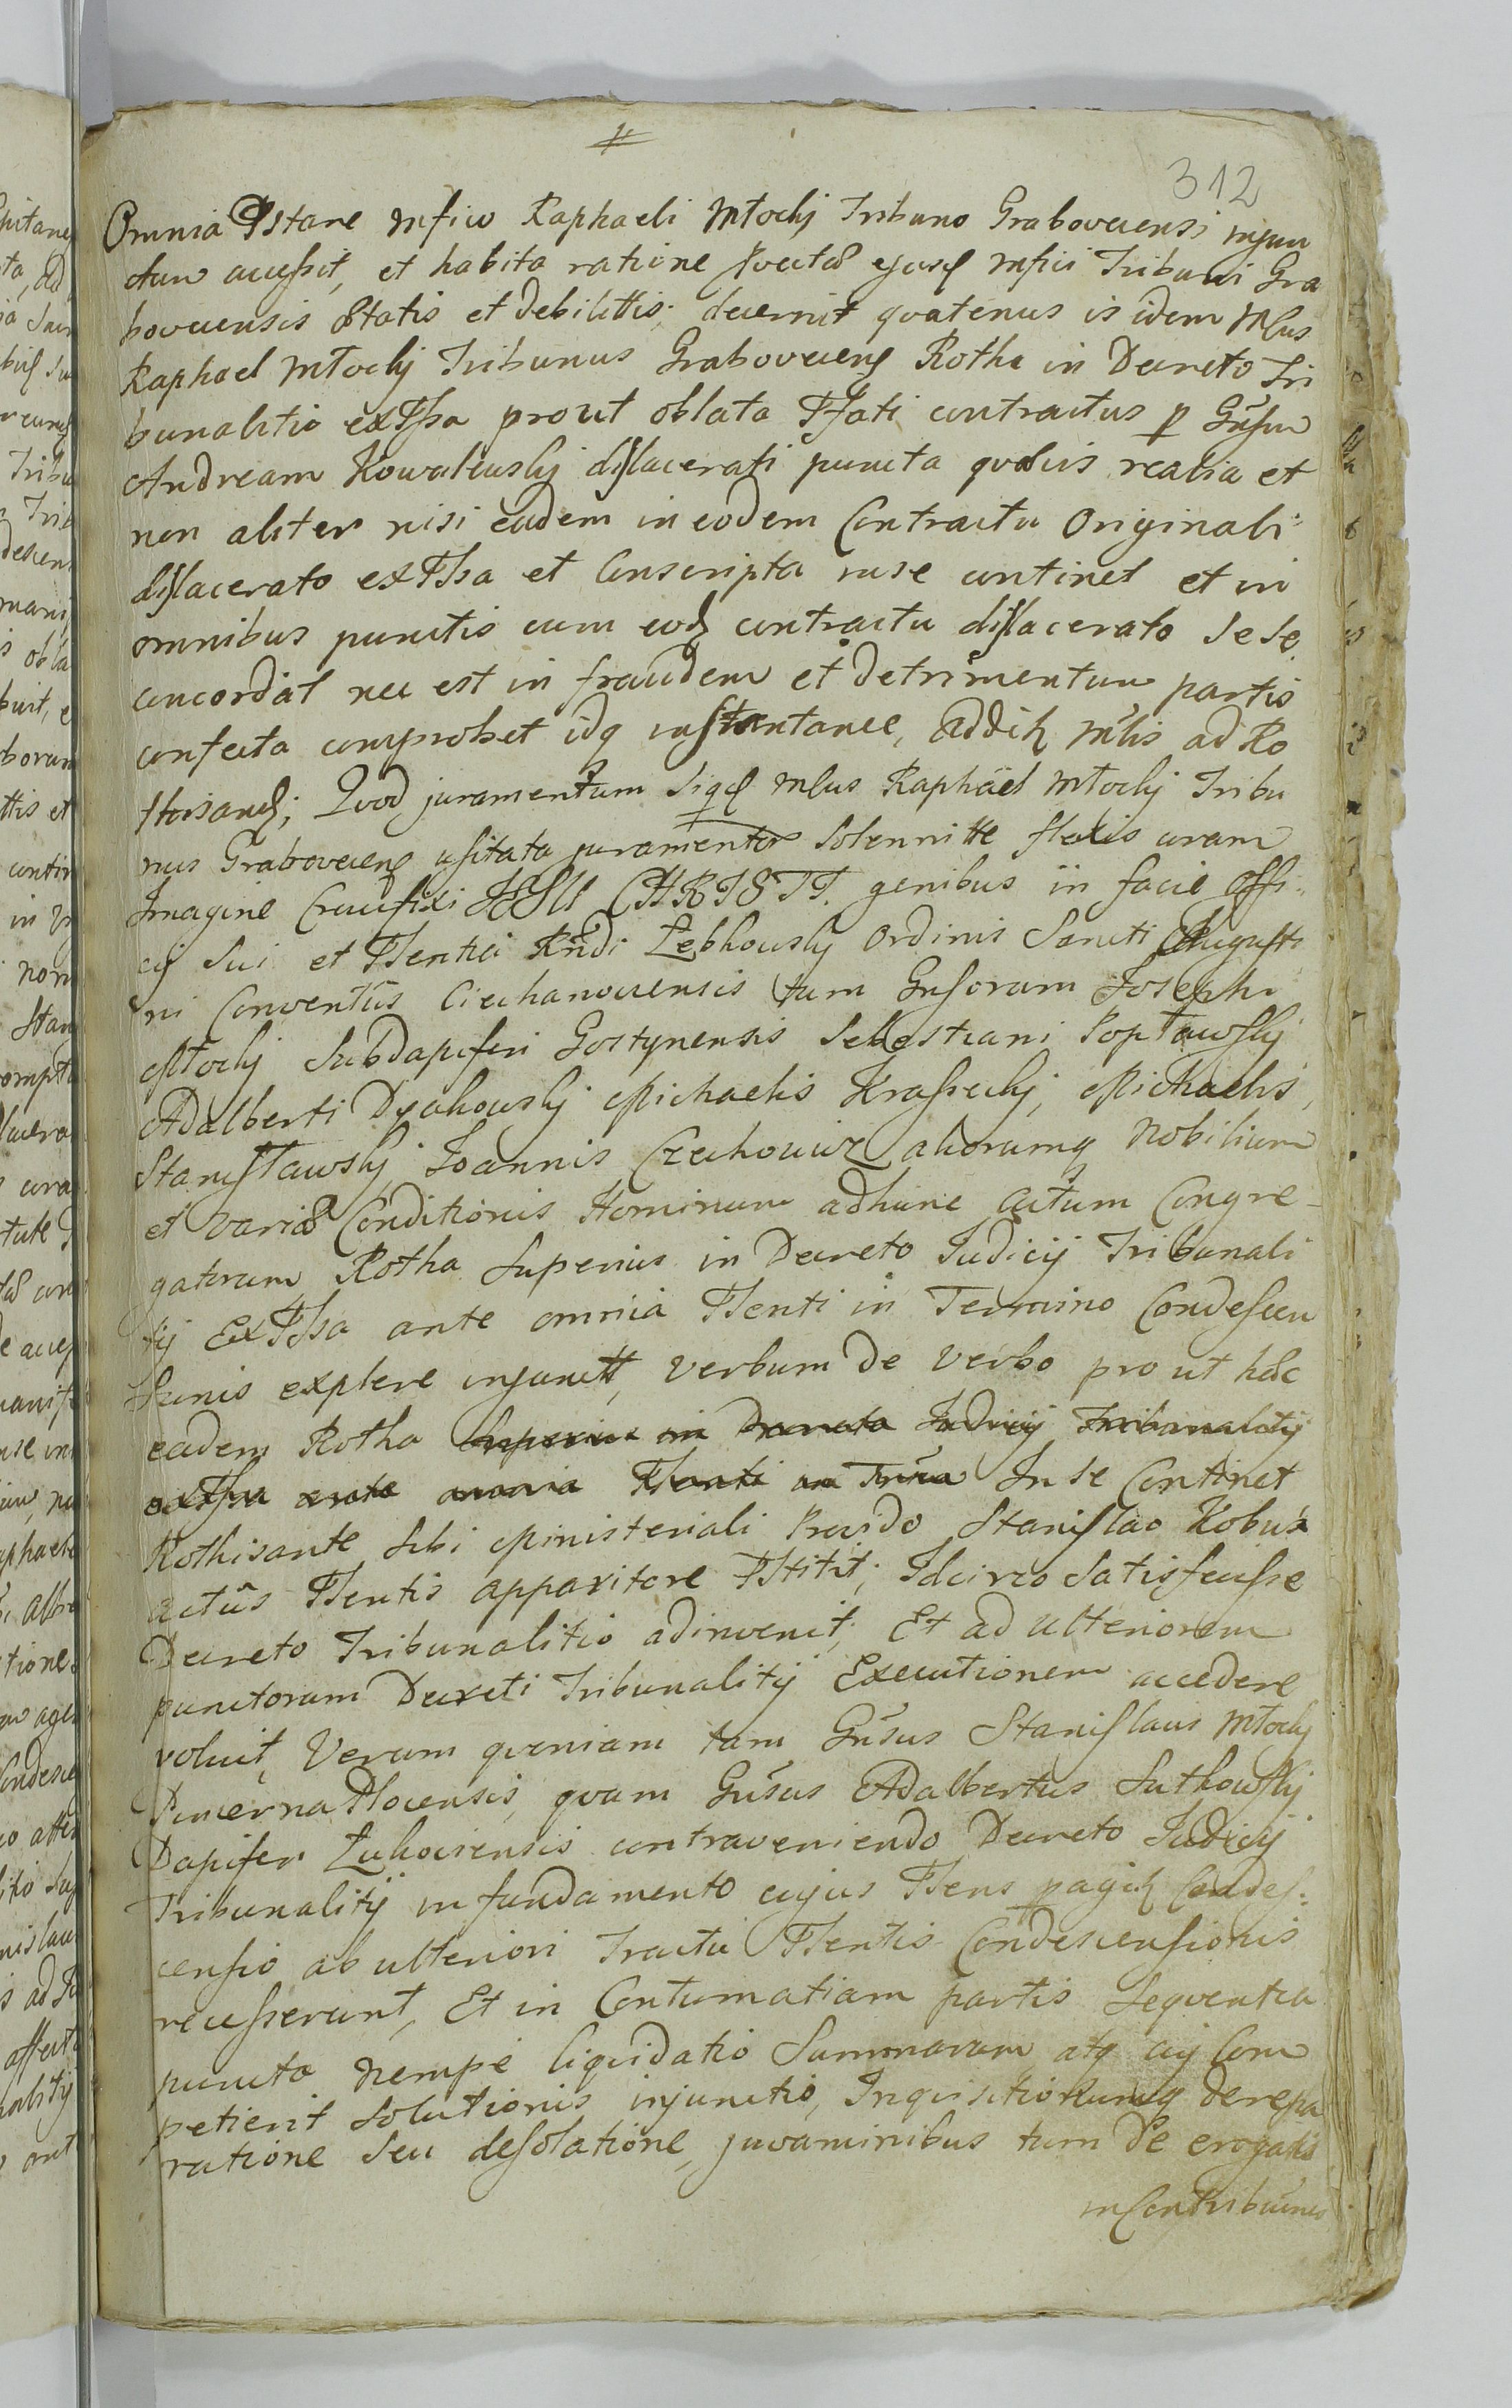 312
Omnia Pstare Mfico Raphaeli Młocky Tribuno Grabovecensi injun
ctum accessit, et habita ratione provectæ ejusd Mfici Tribuni Gra
bovecensis Ætatis et debilittis; decernit quatenus is idem Mfus
Raphael Młocky Tribunus Graboveceng Rotha in Decreto Tri
bunalitio exPssa prout oblata Psati contractus p Gnsum
Andream Kowalewsky dislacerati puncta quævis realia et
non aliter nisi eadem in eodem Contractu Originali
dislacerato exPssa et Conscripta in se continet et in
omnibus punctis cum eod contractu dislacerato sese
concordat nec est in fraudem et detrimentum partis
confecta comprobet idq instantanee, addict Mlis ad Ro
thisand; Quod juramentum siqd Mfus Raphäel Młocky Tribu
nus Graboveceng usitata juramentor solennitte flexis coram
Imagine Crucifixi JESU CHRISTI. genibus in facie Offi
cij Sui et Psentia Rndi Zebkowsky Ordinis Sancti Augusti
ni Conventûs Ciechanoviensis tum Gnsorum Josephi
Młocky Subdapiferi Gostynensis Sebestiani Popławsky
Adalberti Dyakowsky Michaelis Krassecky, Michaelis,
Stanisławsky, Joannis Czechowicz aliorumq Nobilium
et variæ Conditionis Hominum adhunc actum Congre-
gatorum Rotha superius in Decreto Judicij Tribunali
tij ExPssa ante omnia Psenti in Termino Condescen
sionis explere injunctt, verbum de verbo pro ut hæc
eadem Rotha superius in Decreto Judicij Tribunalitij
exPssa ante omnia Psenti in Trno In se Continet
Rothisante sibi Ministeriali Provido Stanislao Kobus
actûs Psentis apparitore Pstitit; Idcirco satisfecisse
Decreto Tribunalitio adinvenit; Et ad ulteriorem
punctorum Decreti Tribunalitij Executionem accedere
voluit, Verum quoniam tam Gnsus Stanislaus Młocky
Pincerna Plocensis, quam Gnsus Adalbertus Sutkowsky
Dapifer Zakocensis contraveniendo Decreto Judicij
Tribunalitij in fundamento cujus Psens pagit Condes:
censio ab ulteriori Tractu Psentis Condescensionis
recesserunt, Et in Contumatiam partis sequentia
puncta nempe liquidatio Summarum atq cuj Com
petierit solutionis injunctio, Inquisitionumq de repa
ratione seu desolatione, juvaminibus tum de erogatis
in Contribuines